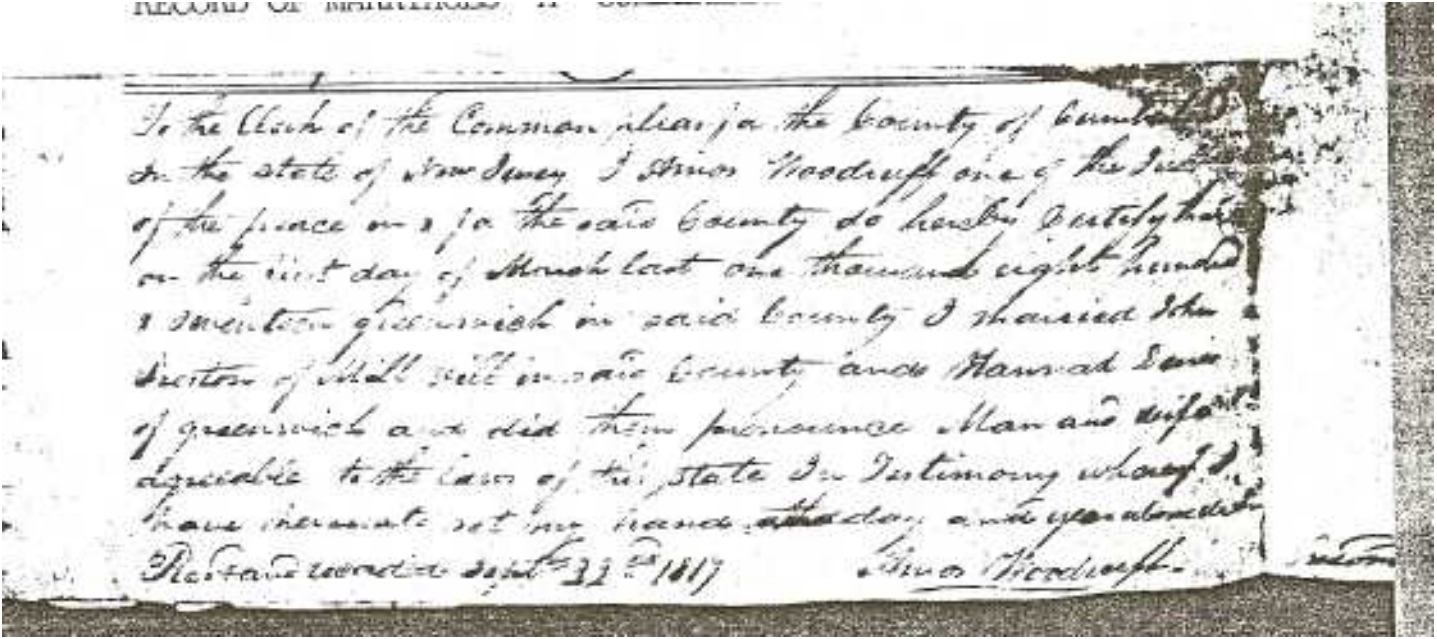 RECORD OF MARRIAGES "A"
To the Clerk of the Common pleas for the County of
In the state of New Jersey I Amos Woodruff one of the
of the peace in & for the said County do hereby Certify that
on the first day of March last one thousand eight hundred
& seventeen greenwich in said County I married John
of Mill ville in said County and Hannah
of greenwich and did them pronounce Man and wife
agreeable to the laws of this state In Testimony whereof I
have hereunto set my hand the day and year above
Recd and recorded Septr 22nd 1817 Amos Woodruff